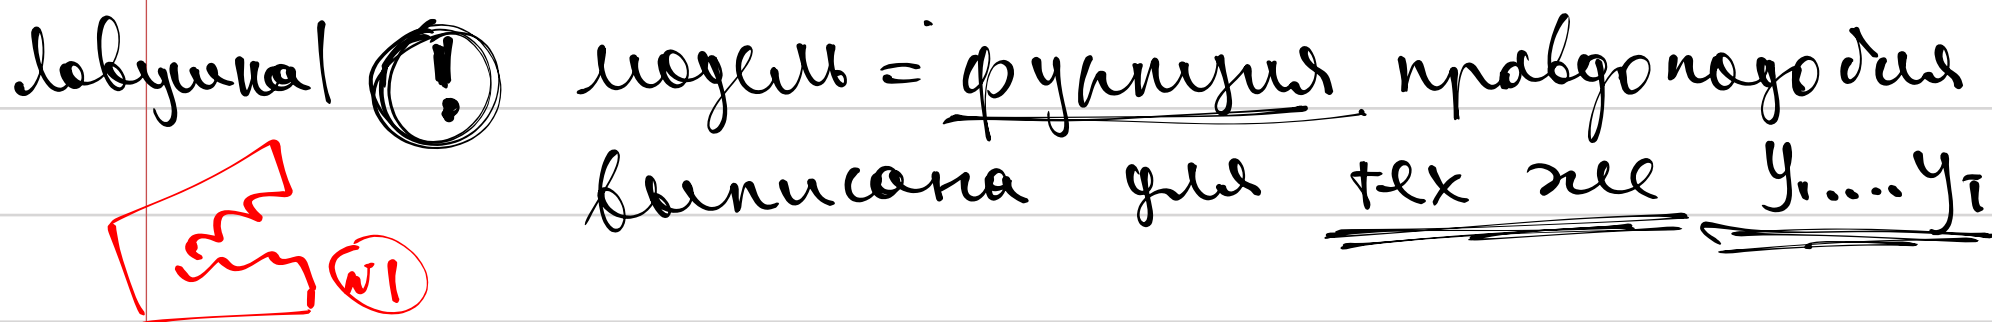 ловушка! ! модель = функция правдоподобия
выписана для тех же y₁....y_T
№1